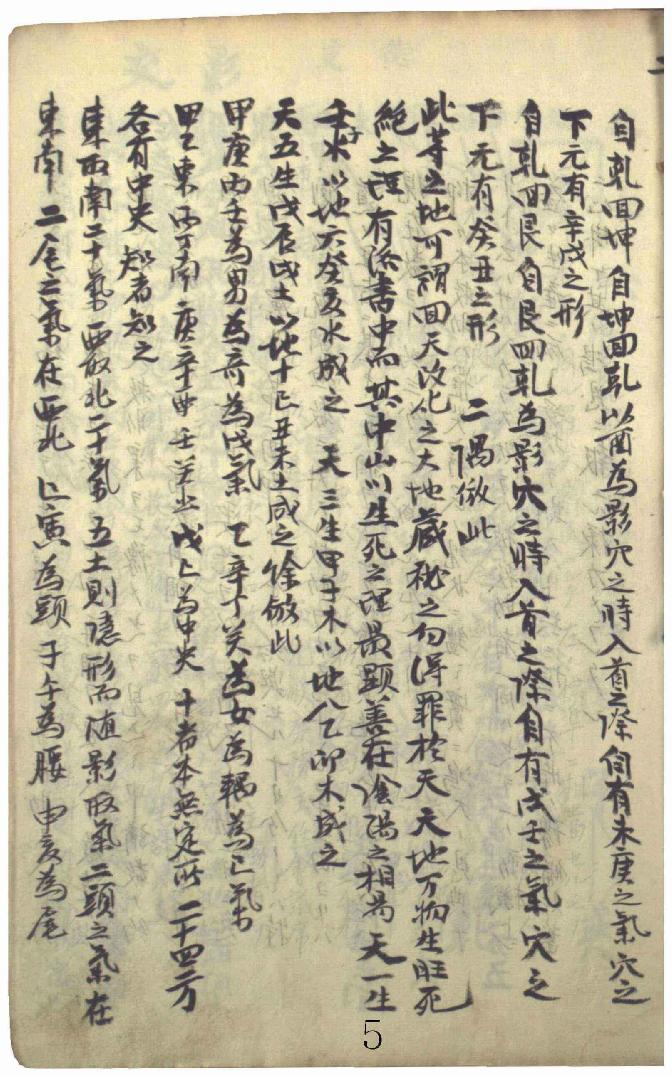 自乾回坤 自坤回乾 以酉為影穴之時 入首之際 自有未庚之氣 穴之
下元有辛戌之形
自乾回艮 自艮回乾 為影穴之時 入首之際 自有戌壬之氣 穴之
下元有癸丑之形 二隅倣此
此等之地可謂回天改化之大地 藏秘之勿得罪於天 天地万物生旺死
絶之理有洛書中而其中山川生死之理最顯善在陰陽之相為 天一生
壬水以地六癸亥水成之 天三生甲子木以地八乙卯木成之
天五生戊辰戌土以地十己丑未土成之 餘倣此
甲庚丙壬為男為奇為戊氣 乙辛丁癸為女為耦為己氣
甲乙東 丙丁南 庚辛西 壬癸北 戊己為中央 十者本無定所 二十四方
各有中央 知者知之
東西南二十氣 西北二十氣 五土則隱形而随影取氣 二頭之氣在
東南 二尾之氣在西北 巳寅為頭 子午為腰 申亥為尾
5